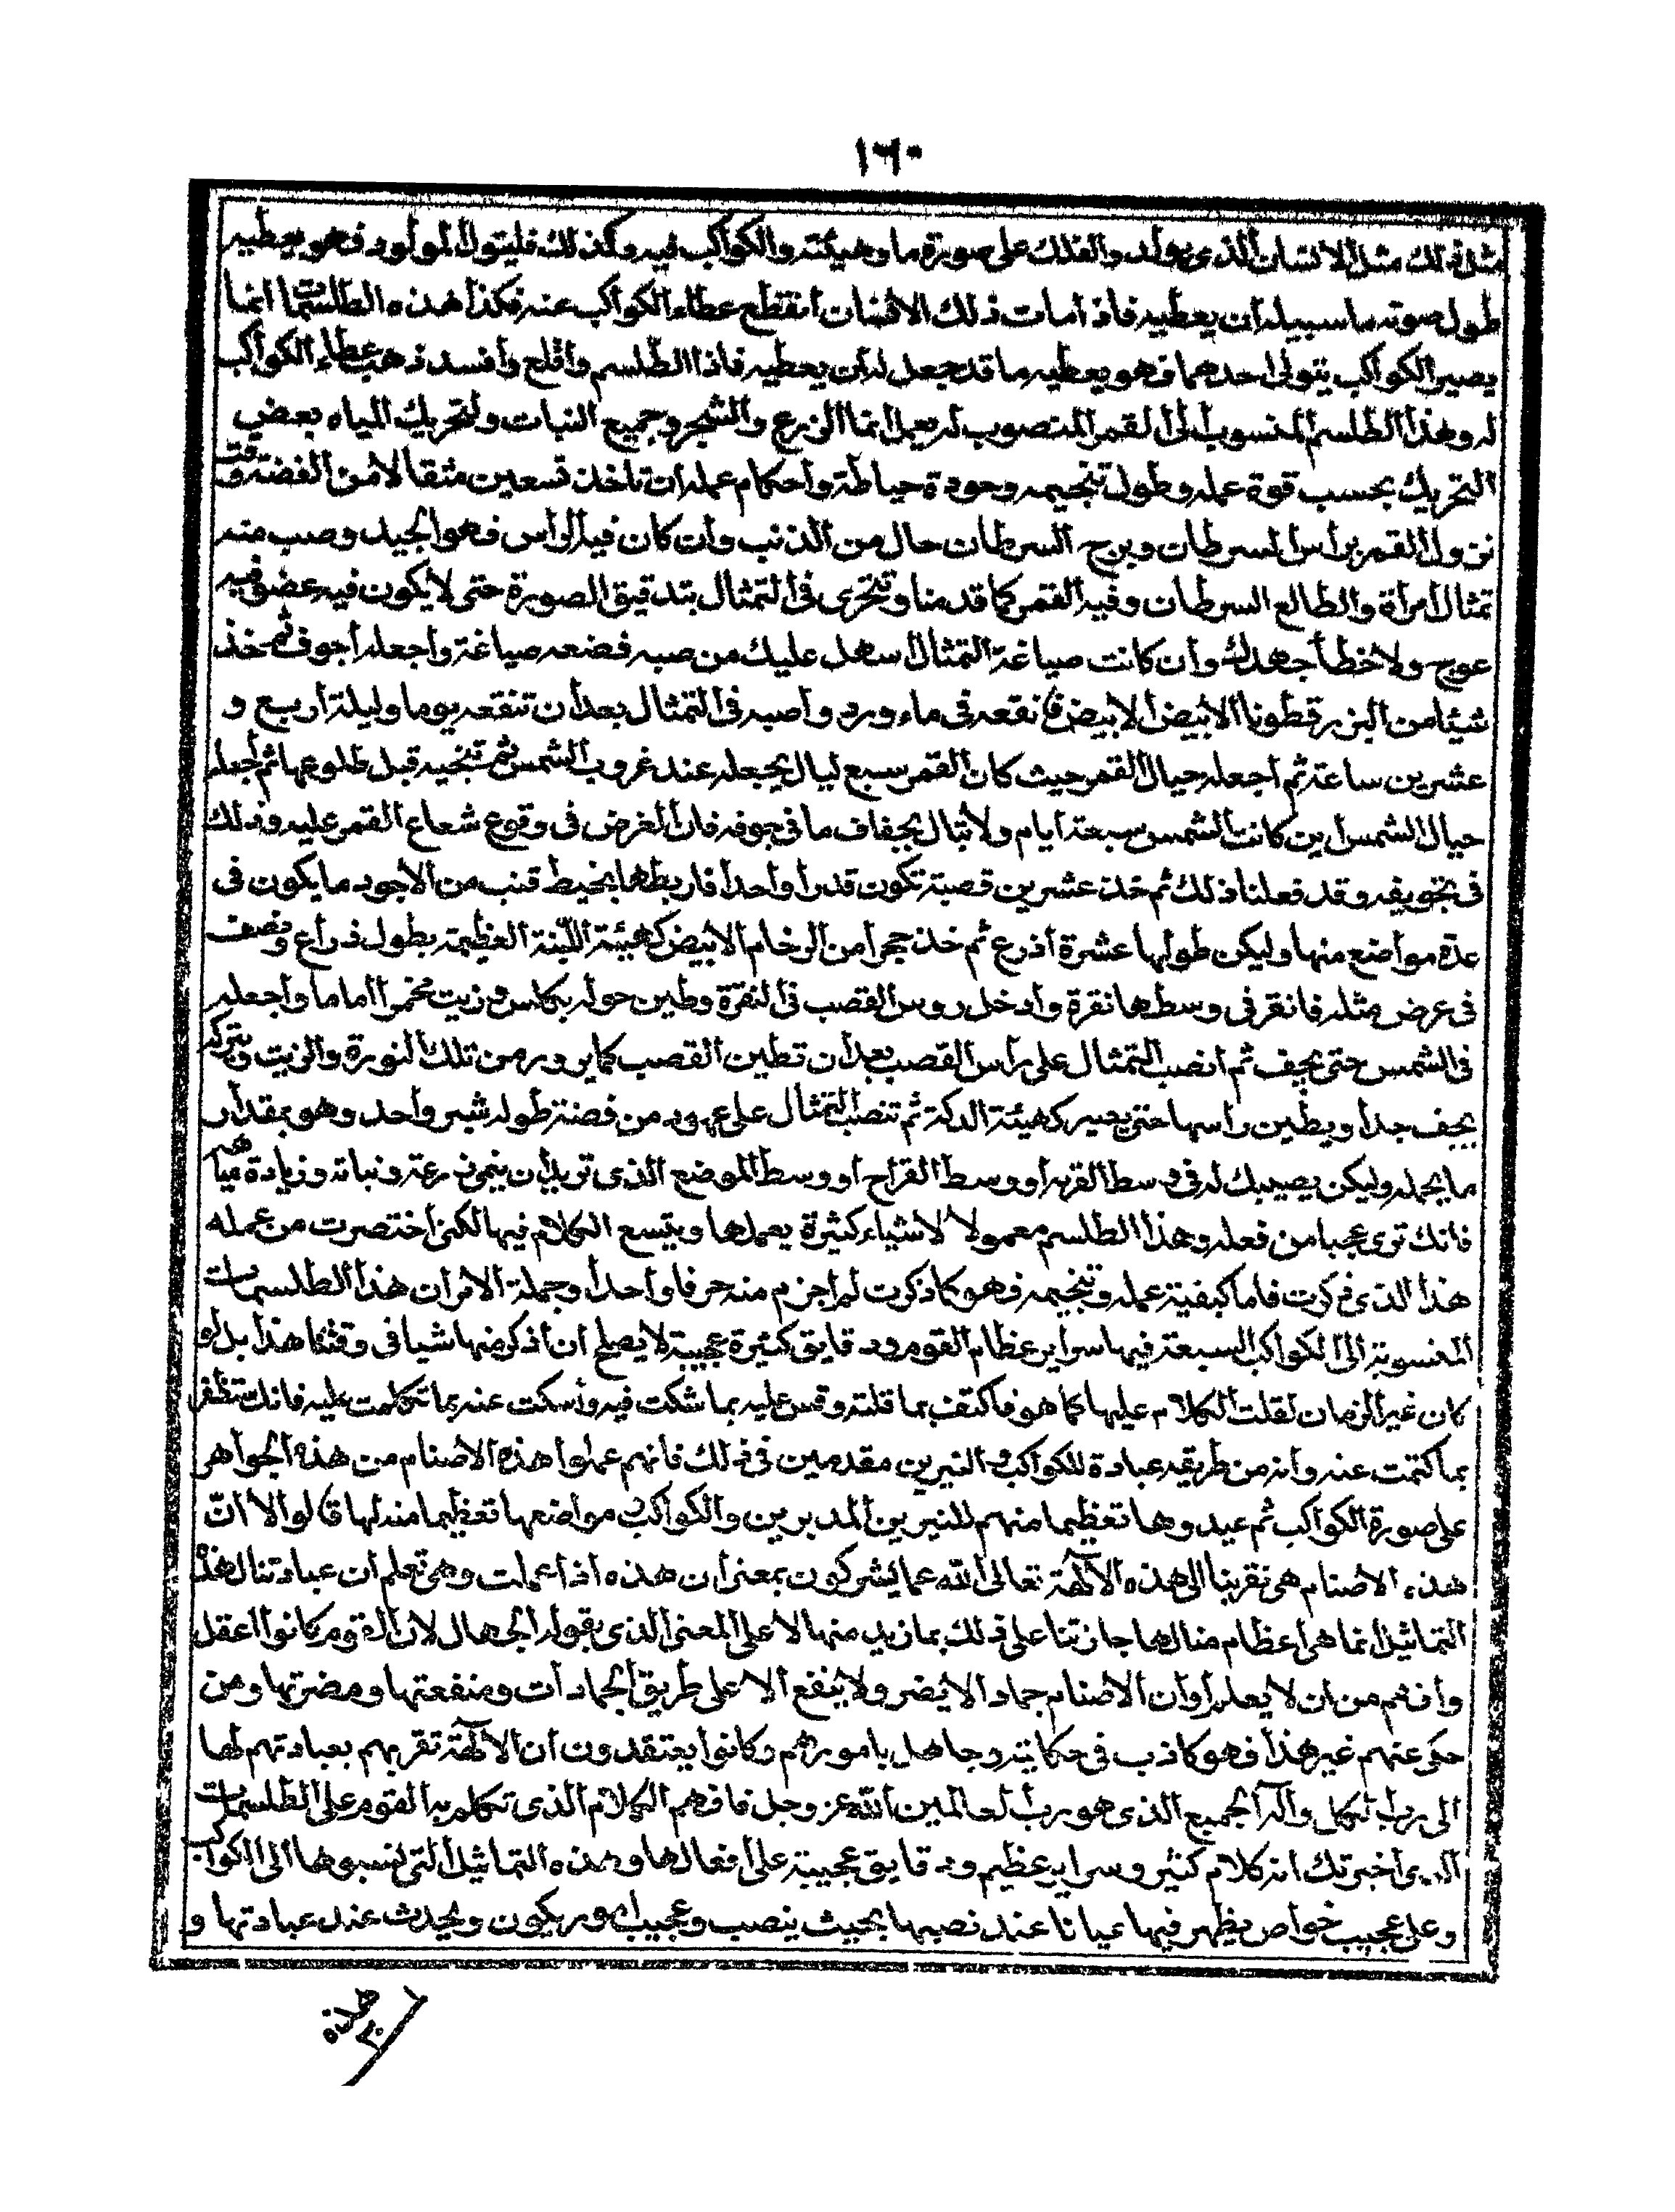 ١٦٠
مثل ذلك مثل الانسان الذى يولد والفلك على صورة ما وهيئته والكواكب فيه وكذلك فليتول المولود فهو يعطيه
طول صوته ما سبيله ان يعطيه فاذا مات ذلك الانسان انقطع عطاء الكواكب عنه فكذا هذه الطلسمات انما
يصير الكواكب يتولى احدهما فهو يعطيه ما قد جعل له ان يعطيه فاذا الطلسم واقلع وافسد ذهب عطاء الكواكب
له وهذا الطلسم المنسوب الى القمر المنصوب له يعمل انما الزرع والشجر وجميع النبات ولتحريك المياه بعض
التحريك بحسب قوة عمله وطول تنجيمه وجودة حياطته واحكام عمله ان تاخذ تسعين مثقالا من الفضة وقت
نزول القمر براس السرطان وبرج السرطان حال من الذنب وان كان فيه الراس فهو الجيد وصب منه
تمثال امراة والطالع السرطان وفيه القمر كما قدمنا وتتحرى فى التمثال بتدقيق الصورة حتى لا يكون فيه عضو فيه
عوج ولا خطأ جهدك وان كانت صياغة التمثال اسهل عليك من صبه فضعه صياغة واجعله اجوف ثم خذ
شيئا من البزرقطونا الابيض الابيض فانقعه فى ماء ورد واصبه فى التمثال بعد ان تنقعه يوما وليلة اربع و
عشرين ساعة ثم اجعله حيال القمر حيث كان القمر سبع ليال يجعله عند غروب الشمس ثم تنجيه قبل طلوعها ثم اجعله
حيال الشمس اين كانت الشمس سبعة ايام ولا تبال بجفاف ما فى جوفه فان الغرض فى وقوع شعاع القمر عليه وذلك
فى تجويفه وقد فعلنا ذلك ثم خذ عشرين قصبة تكون قدرا واحدا فاربطها بخيط قنب من الاجود ما يكون فى
عدة مواضع منها وليكن طولها عشرة اذرع ثم خذ حجرا من الرخام الابيض كهيئة اللبنة العظيمة بطول ذراع ونصف
فى عرض مثله فانقر فى وسطها نقرة وادخل روس القصب فى النقرة وطين حوله بكلس وزيت مخمر اماما واجعله
فى الشمس حتى يجف ثم انصب التمثال على راس القصب بعد ان تطين القصب كما يدور من تلك النورة والزيت وتتركه
يجف جدا ويطين راسها حتى يصير كهيئة الدكة ثم تنصب التمثال على عمود من فضة طوله شبر واحد وهو بمقدار
ما يحمله وليكن نصيبك له فى وسط القرية او وسط القراح او وسط الموضع الذى تريد ان ينمى زرعه ونباته وزيادة مياهه
فانك ترى عجبا من فعله وهذا الطلسم معمولا لاشياء كثيرة يعملها ويتسع الكلام فيها لكنى اختصرت من عمله
هذا الذى ذكرت فاما كيفية عمله وتنجيمه فهو كما ذكرت لم اجزم منه حرفا واحدا وجملة الامر ان هذا الطلسمات
المنسوبة الى الكواكب السبعة فيها سراير عظام القوم ودقايق كثيرة عجيبة لا يصلح ان اذكر منها شيا فى وقتنا هذا بل لو
كان غير الزمان لقلت الكلام عليها كما هو فاكتف بما قلته وقس عليه بما شكت فيه واسكت عنه بما تكلمت عليه فانك ستظفر
بما كتمت عنه وانه من طريقه عبادة للكواكب والنيرين مقدمين فى ذلك فانهم عملوا هذه الاصنام من هذه الجواهر
على صورة الكواكب ثم عبدوها تعظيما منهم للنيرين المدبرين والكواكب مواضعها تعظيما منه لها قالوا لا ان
هذه الاصنام هى تقربنا الى هذه الآلهة تعالى الله عما يشركون بمعنى ان هذه اذا عملت وهى تعلم ان عبادتنا لهذه
التماثيل انما هى اعظام منا لها جازتنا على ذلك بما نريد منها لا على المعنى الذى يقوله الجهال لان القوم كانوا اعقل
وافهم من ان لا يعلموا وان الاصنام جماد الا يضر ولا ينفع الا على طريق الجمادات ومنفعتها ومضرتها ومن
حكى عنهم غير هذا فهو كاذب فى حكايته وجاهل بامورهم وكانوا يعتقدون ان الآلهة تقربهم بعبادتهم لها
الى رب الكل واله الجميع الذى هو رب العالمين الله عز وجل فافهم الكلام الذى تكلم به القوم على الطلسمات
الذى اخبرتك انه كلام كثير وسراير عظيم ودقايق عجيبة على افعالها وهذه التماثيل التى نسبوها الى الكواكب
وعلى عجيب خواص يظهر فيها عيانا عند نصبها بحيث ينصب وعجيب امور يكون ويحدث عند عبادتها و